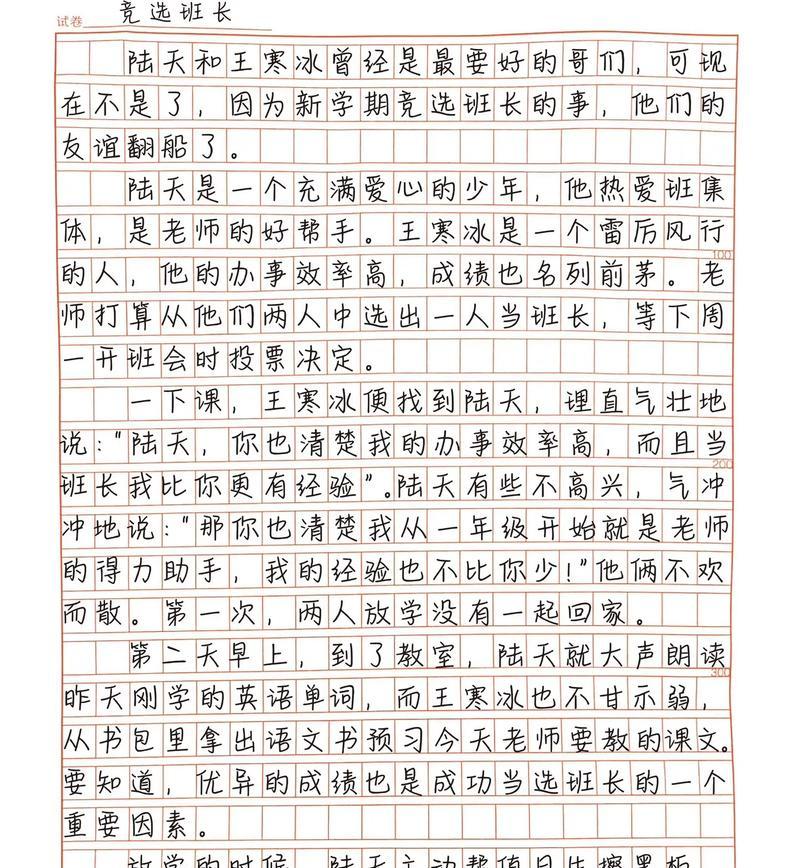 竞选班长
试卷
陆天和王寒冰曾经是最要好的哥们，可现
在不是了，因为新学期竞选班长的事，他们的
友谊翻船了。
陆天是一个充满爱心的少年，他热爱班集
体，是老师的好帮手。王寒冰是一个雷厉风行
100
的人，他的办事效率高，成绩也名列前茅。老
师打算从他们两人中选出一人当班长，等下周
一开班会时投票决定。
一下课，王寒冰便找到陆天，理直气壮地
说："陆天，你也清楚我的办事效率高，而且当
200
班长我比你更有经验"。陆天有些不高兴，气冲
冲地说："那你也清楚我从一年级开始就是老师
的得力助手，我的经验也不比你少！"他俩不欢
而散。第一次，两人放学没有一起回家。
第二天早上，到了教室，陆天就大声朗读
300
昨天刚学的英语单词，而王寒冰也不甘示弱，
从书包里拿出语文书预习今天老师要教的课文。
要知道，优异的成绩也是成功当选班长的一个
重要因素。
放学的时候，陆天主动帮值日生擦黑板，